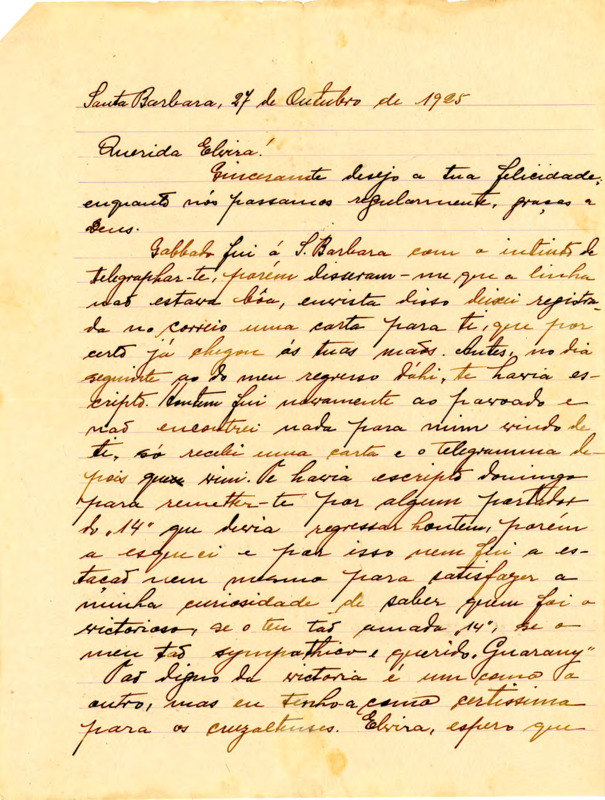 Santa Barbara, 27 de Outubro de 1925
Querida Elvira!
Sinceramte desejo a tua felicidade,
enquanto nós passamos regularmente, graças a
Deus.
Sabbado fui á S. Barbara com o intuito de
telegraphar-te, porém disseram-me que a linha
não estava bôa, envista disso deixei registra-
da no correio uma carta para ti, que por
certo já chegou ás tuas mãos. Antes, no dia
seguinte ao do meu regresso dáhi, te havia es-
cripto. Hontem fui novamente ao povoado e
não encontrei nada para mim vindo de
ti, só recebi uma carta e o telegramma de-
pois que vim. Te havia escripto domingo
para remetter-te por algum portador
do "14" que devia regressar hontem, porém
a esqueci e por isso nem fui a es-
tação nem mesmo para satisfazer a
minha curiosidade de saber quem foi o
victorioso, se o teu tão amado "14", se o
meu tão sympathico e querido "Guarany"
Tão digno da victoria é um como o
outro, mas eu tinho-a como certissima
para os cruzaltenses. Elvira, espero que